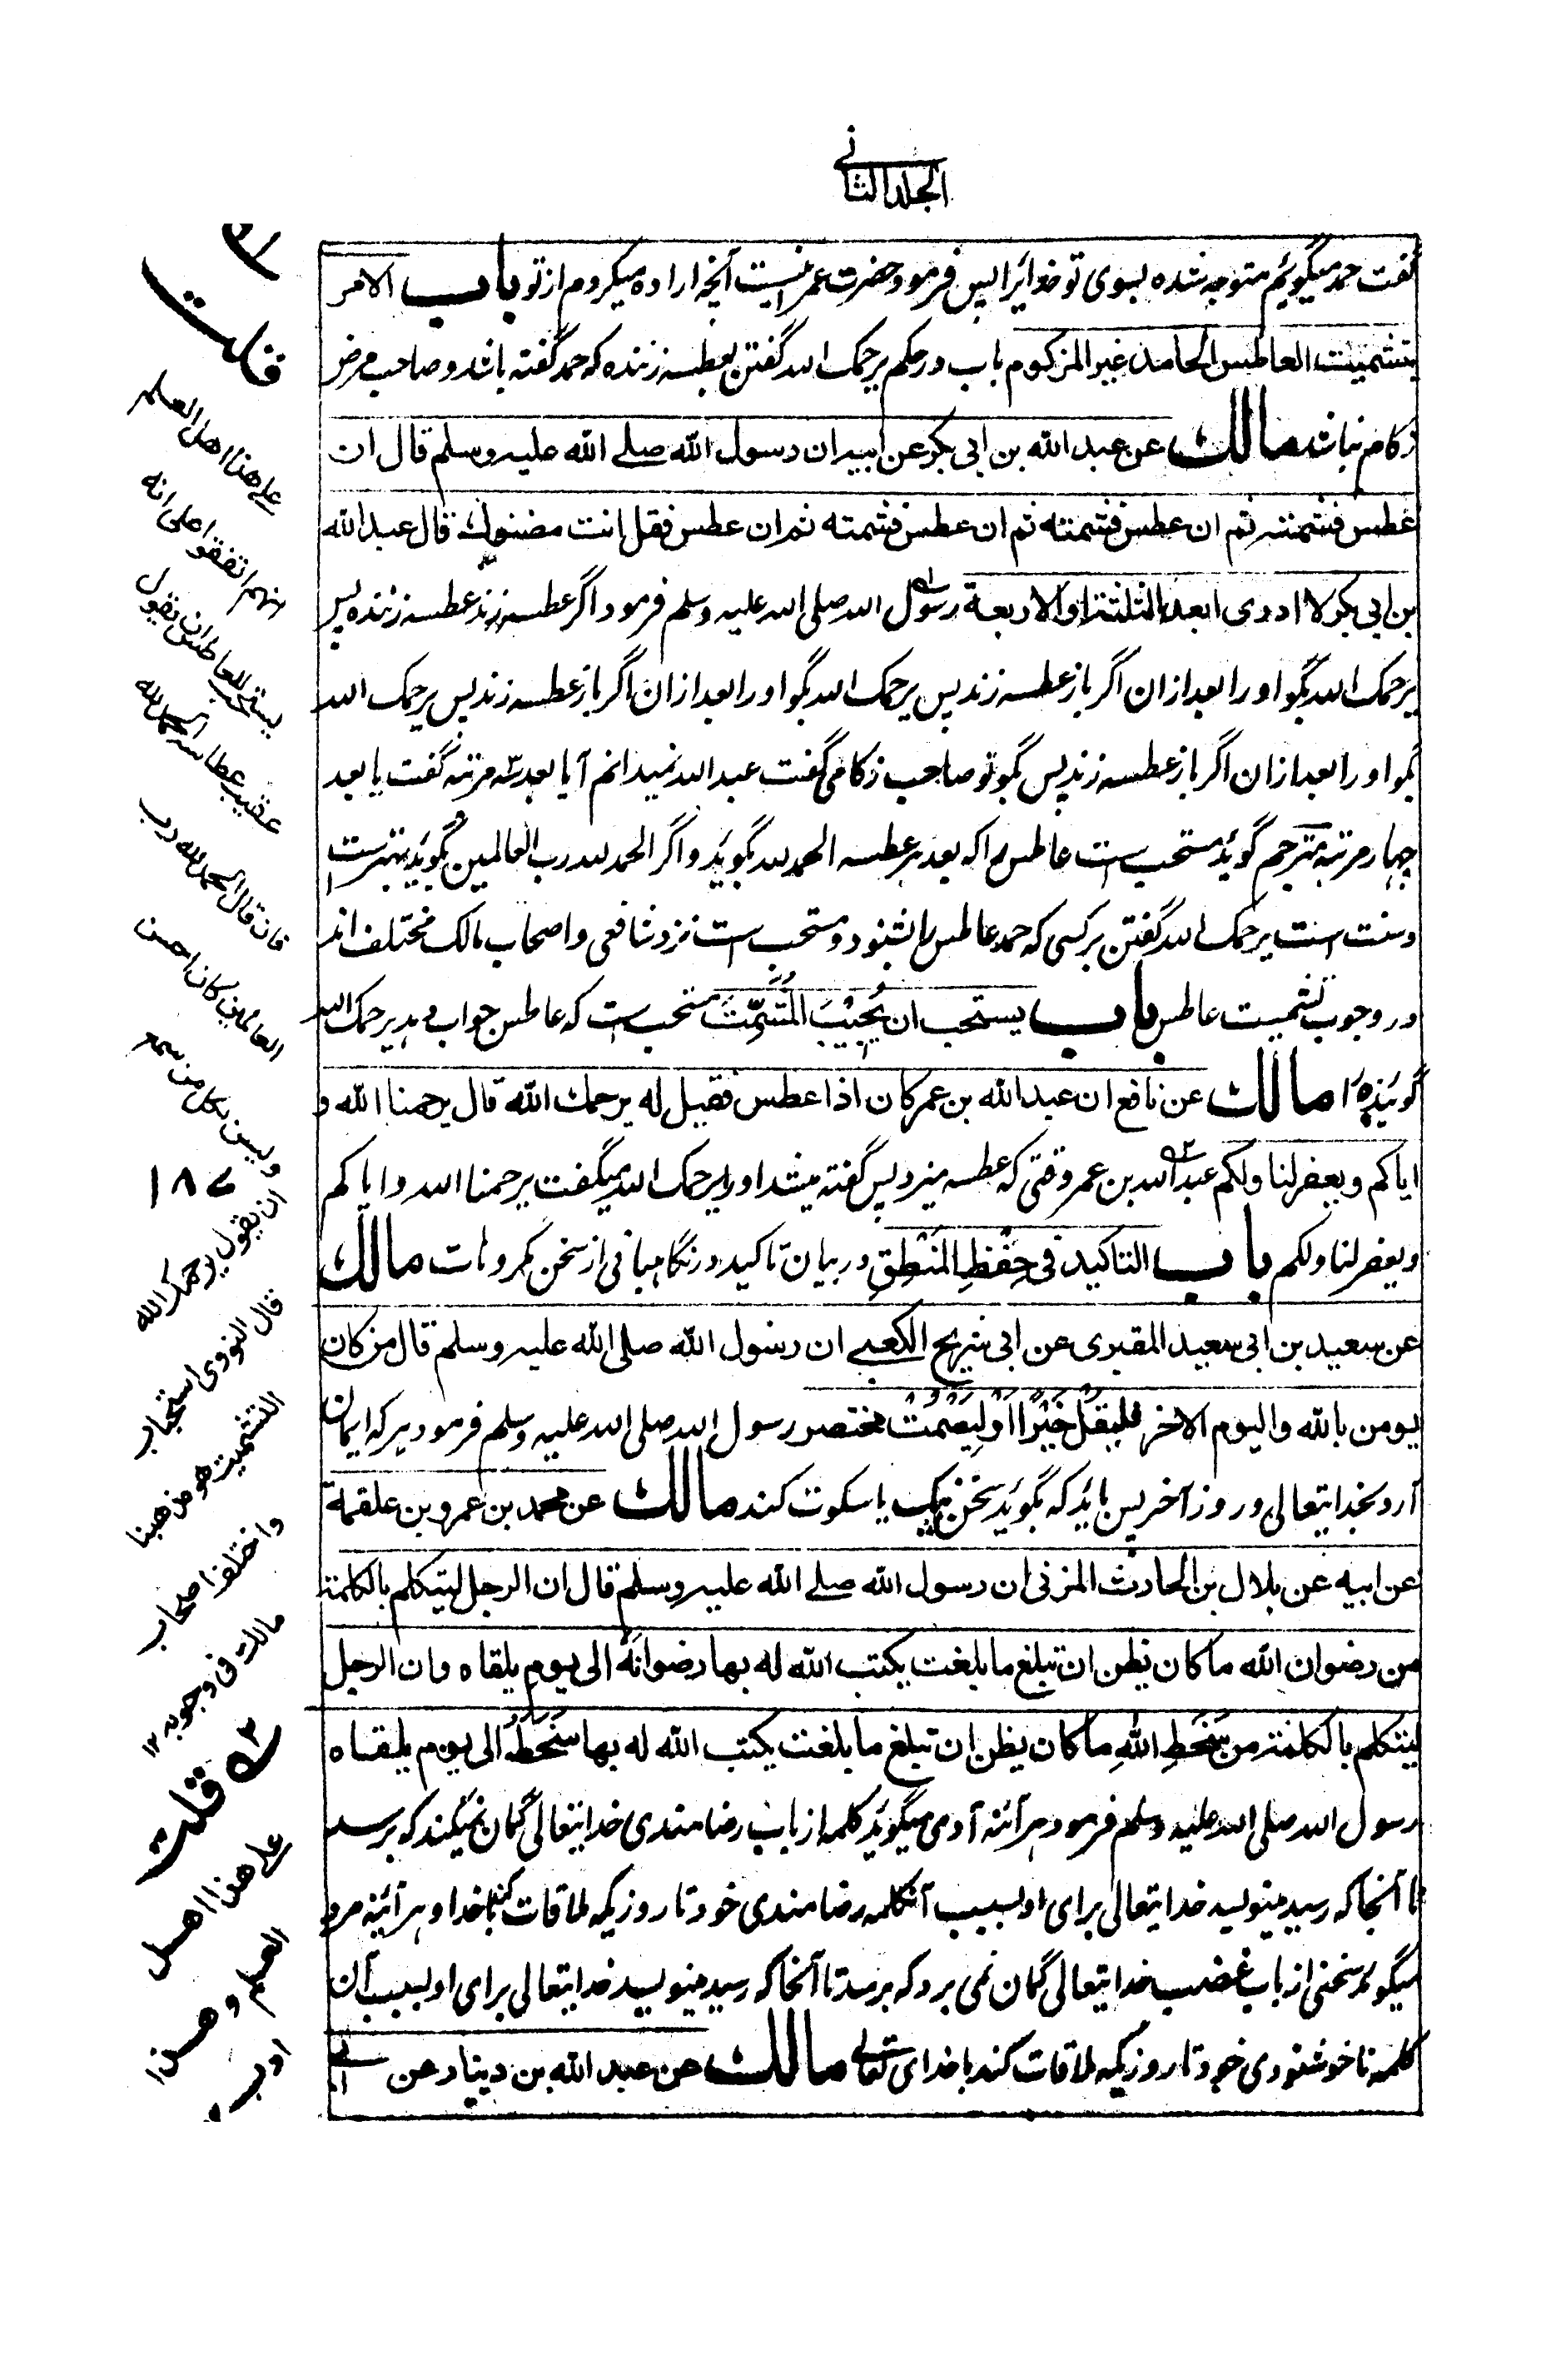 الجلد الثانی
گفت حمد میگویم متوجه شده بسوی تو خدایرا پس فرمود حضرت عمر اینست آنچه اراده میکردم از تو باب الامر
بتشمیت العاطس الحامد غیر المزکوم باب در حکم یرحمک الله گفتن بعطسه زننده که حمد گفته باشد و صاحب مرض
زکام نباشد مالک عن عبد الله بن ابی بکر عن ابیه ان رسول الله صلے الله علیه وسلم قال ان
عطس فشمته ثم ان عطس فشمته ثم ان عطس فشمته ثم ان عطس فقل انت مضنوك قال عبد الله
بن ابی بکر لا ادری ابعد الثلثة او الاربعة رسول الله صلی الله علیه وسلم فرمود اگر عطسه زند عطسه زننده پس
یرحمک الله بگو او را بعد ازان اگر باز عطسه زند پس یرحمک الله بگو او را بعد ازان اگر باز عطسه زند پس یرحمک الله
بگو او را بعد ازان اگر باز عطسه زند پس بگو تو صاحب زکامی گفت عبد الله نمیدانم آیا بعد سه مرتبه گفت یا بعد
چهار مرتبه مترجم گوید مستحب ست عاطس را که بعد هر عطسه الحمد لله بگوید و اگر الحمد لله رب العالمین بگوید بهترست
و سنت است یرحمک الله گفتن بر کسی که حمد عاطس را بشنود و مستحب ست نزد شافعی و اصحاب مالک مختلف اند
در وجوب تشمیت عاطس باب یستحب ان یُجِیْبَ المُشَمِّتَ مستحب ست که عاطس جواب دهد یرحمک الله
گوینده را مالک عن نافع ان عبد الله بن عمر کان اذا عطس فقیل له یرحمك الله قال یرحمنا الله و
ایاکم و یغفر لنا ولکم عبد الله بن عمر وقتی که عطسه میزد پس گفته میشد او را یرحمک الله میگفت یرحمنا الله و ایاکم
و یغفر لنا ولکم باب التاکید فی حِفْظِ المَنْطِقِ در بیان تاکید در نگاهبانی از سخن مکروهات مالک
عن سعید بن ابی سعید المقبری عن ابی شریح الکعبے ان رسول الله صلی الله علیه وسلم قال من کان
یومن بالله والیوم الاخر فلیقل خَیْرًا او لیَصْمُتْ مختصر رسول الله صلی الله علیه وسلم فرمود هر که ایمان
آرد بخدایتعالی و روز آخر پس باید که بگوید سخن نیک یا سکوت کند مالک عن محمد بن عمرو بن علقمة
عن ابیه عن بلال بن الحادث المزنی ان رسول الله صلے الله علیه وسلم قال ان الرجل لیتکلم بالکلمة
من رضوان الله ما کان یظن ان تبلغ ما بلغت یکتب الله له بها رضوانَهُ الی یوم یلقاه وان الرجل
لیتکلم بالکلمة من سَخَطِ اللهِ ما کان یظن ان تبلغ ما بلغت یکتب الله له بها سَخَطَهُ الی یوم یلقاه
رسول الله صلی الله علیه وسلم فرمود هر آئنه آدمی میگوید کلمه از باب رضامندی خدایتعالی گمان نمیکند که برسد
تا آنجا که رسید مینویسد خدایتعالی برای او بسبب آنکلمه رضامندی خود تا روزیکه ملاقات کند با خدا و هر آئنه مرد
میگوید سخنی از باب غضب خدایتعالی گمان نمی برد که برسد تا آنجا که رسید مینویسد خدایتعالی برای او بسبب آن
کلمه ناخوشنودی خود تا روزیکه ملاقات کند با خدای تعالی مالک عن عبد الله بن دینار عن ابی
قلت
علے هذا اهل العلم
انهم اتفقوا علی انه
یستحب للعاطس ان یقول
عقیب عطاسه الحمد لله
فان قال الحمد لله رب
العالمین کان احسن
ولیس لکل من سمع
١٨٧
ان یقول یرحمک الله
قال النووی استحباب
التشمیت هو مذهبنا
واختلف اصحاب
مالک فی وجوبه ١٢
قلت
علے هذا اهل
العلم و هذا